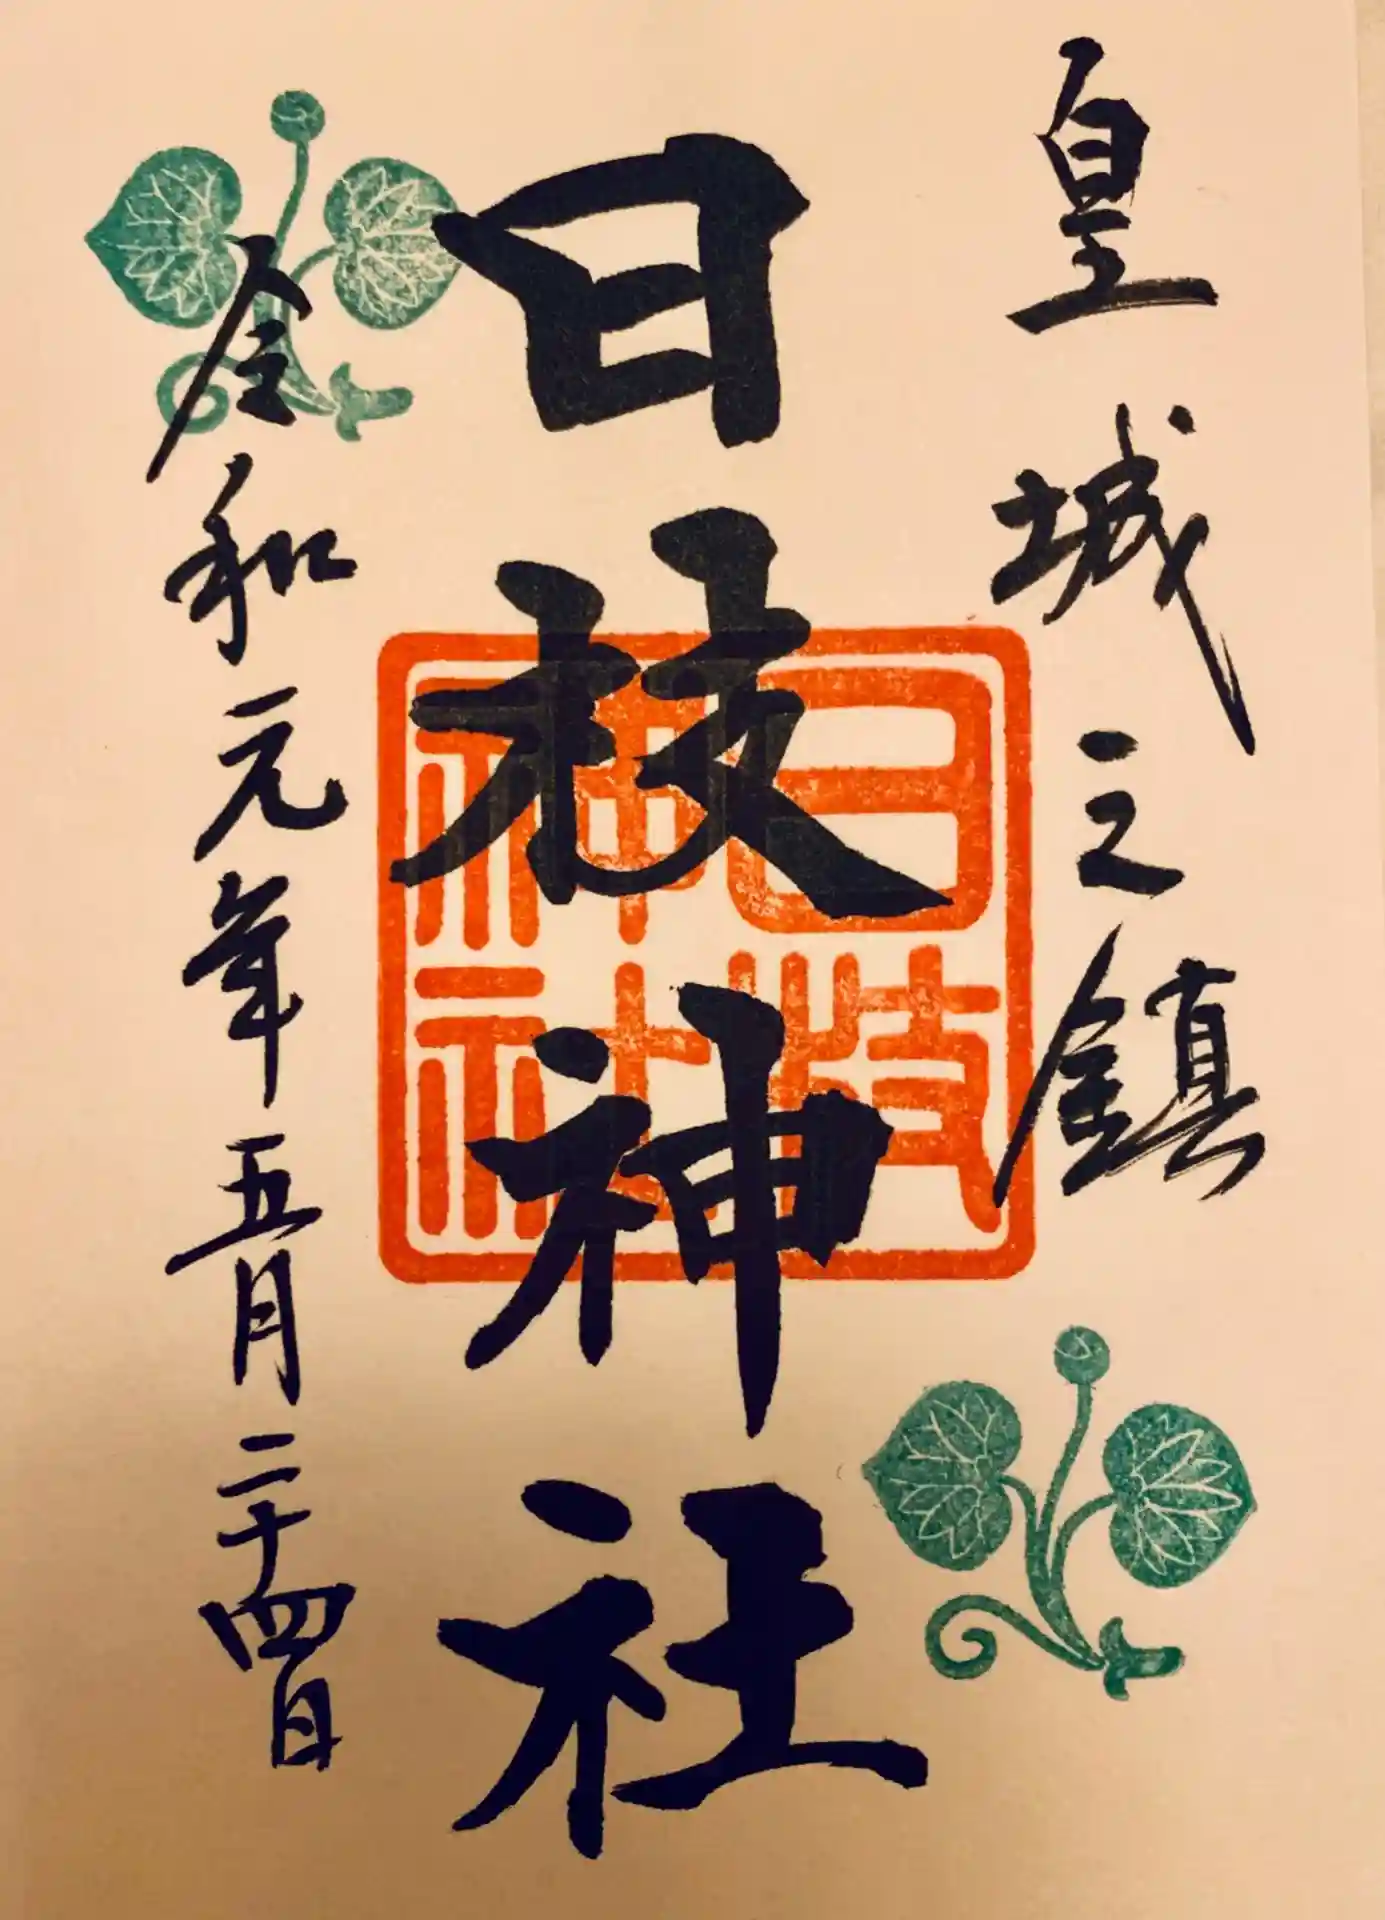 皇城之鎮
日枝神社
日枝
神社
令和元年五月二十四日